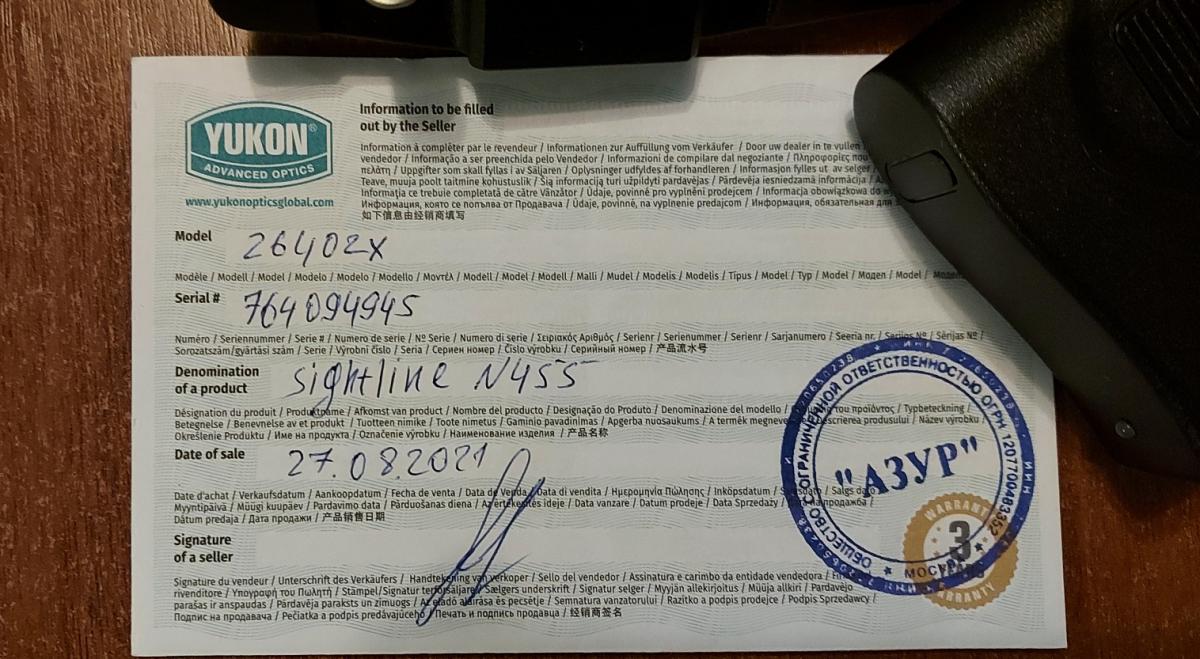 YUKON®
ADVANCED OPTICS
www.yukonopticsglobal.com
Information to be filled
out by the Seller
Information à complêter par le revendeur / Informationen zur Auffüllung vom Verkäufer / Door uw dealer in te vullen
vendedor / Informação a ser preenchida pelo Vendedor / Informazioni da compilare dal negoziante / Πληροφορίες που
πελάτη / Uppgifter som skall fyllas i av Säljaren / Oplysninger udfyldes af forhandleren / Informasjon fylles ut av selger /
Teave, muuja poolt taitmine kohustuslik / Šią informaciją turi užpildyti pardavėjas / Pārdevēja iesniedzamā informācija /
Informaţia ce trebuie completată de către Vânzător / Údaje, povinné pro vyplnění prodejcem / Informacja obowiązkowa do
Информация, която се попълва от Продавача / Údaje, povinné, na vyplnenie predajcom / Информация, обязательная для
如下信息由经销商填写
Model
26402X
Modèle / Modell / Model / Modelo / Modelo / Modello / Μοντέλ / Modell / Model / Modell / Malli / Mudel / Modelis / Modelis / Típus / Model / Typ / Model / Модел / Model /
Serial #
764094945
Numéro / Seriennummer / Serie # / Numero de serie / Nº Serie / Numero di serie / Σειριακός Αριθμός / Serienr / Serienummer / Serienr / Sarjanumero / Seeria nr. / Serijos Nº / Sērijas Nº /
Sorozatszám/gyártási szám / Serie / Výrobní číslo / Seria / Сериен номер / Číslo výrobku / Серийный номер / 产品流水号
Denomination
of a product
Sightline N455
Désignation du produit / Produktname / Afkomst van product / Nombre del producto / Designação do Produto / Denominazione del modello / του προϊόντος / Typbeteckning /
Betegnelse / Benevnelse av et produkt / Tuotteen nimike / Toote nimetus / Gaminio pavadinimas / Apgerba nuosaukums / A termék / Descrierea produsului / Název výrobku /
Określenie Produktu / Име на продукта / Označenie výrobku / Наименование изделия / 产品名称
Date of sale
27.08.2021
Date d'achat / Verkaufsdatum / Aankoopdatum / Fecha de venta / Data de Venda / Data di vendita / Ημερομηνία Πώλησης / Inköpsdatum / Salgs dato
Myyntipäivä / Müügi kuupäev / Pardavimo data / Pārduošanas diena / Az értékesítés ideje / Data vanzare / Datum prodeje / Data Sprzedaży / на продажба /
Dátum predaja / Дата продажи / 产品销售日期
Signature
of a seller
Signature du vendeur / Unterschrift des Verkäufers / Handtekening van verkoper / Sello del vendedor / Assinatura e carimbo da entidade vendedora /
rivenditore / Υπογραφή του Πωλητή / Stämpel/Signatur Sælgers underskrift / Signatur selger / Myyjän allekirjoitus / Müüja allkiri / Pardavėjo
parašas ir anspaudas / Pārdevēja paraksts un zīmogs / Az eladó aláírása és pecsétje / Semnatura vanzatorului / Razítko a podpis prodejce / Podpis Sprzedawcy /
Подпис на продавача / Pečiatka a podpis predávajúceho / Печать и подпись продавца / 经销商签名
ОБЩЕСТВО С ОГРАНИЧЕННОЙ ОТВЕТСТВЕННОСТЬЮ ОГРН 1207700483352
"АЗУР"
МОСКВА
WARRANTY
3
YEARS
WARRANTY